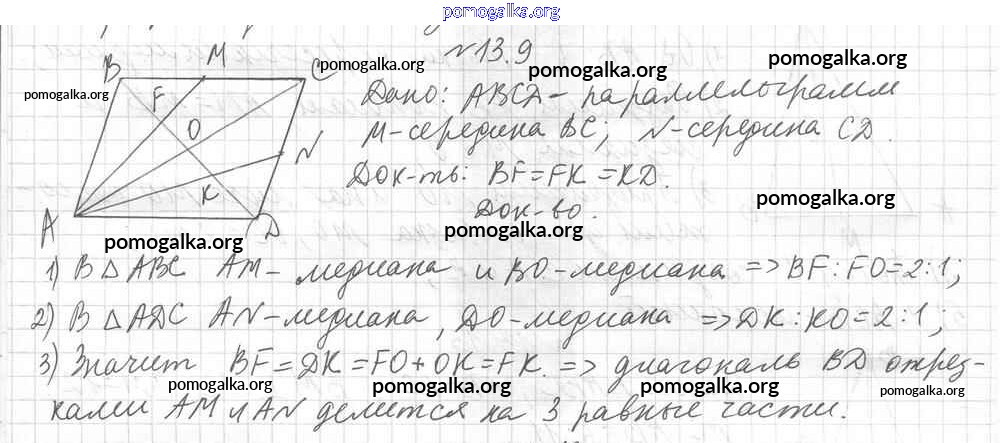 pomogalka.org
№13.9
B M C
pomogalka.org pomogalka.org pomogalka.org
pomogalka.org
F
Дано: ABCD - параллелограмм
O
M - середина BC; N - середина CD.
N
Док-ть: BF = FK = KD.
K
pomogalka.org
Док-во.
A D
pomogalka.org pomogalka.org
1) В △ ABC AM - медиана и BO - медиана => BF : FO = 2 : 1;
2) В △ ADC AN - медиана, DO - медиана => DK : KO = 2 : 1;
3) Значит BF = DK = FO + OK = FK. => диагональ BD отрез-
pomogalka.org pomogalka.org pomogalka.org pomogalka.org
ками AM и AN делится на 3 равные части.